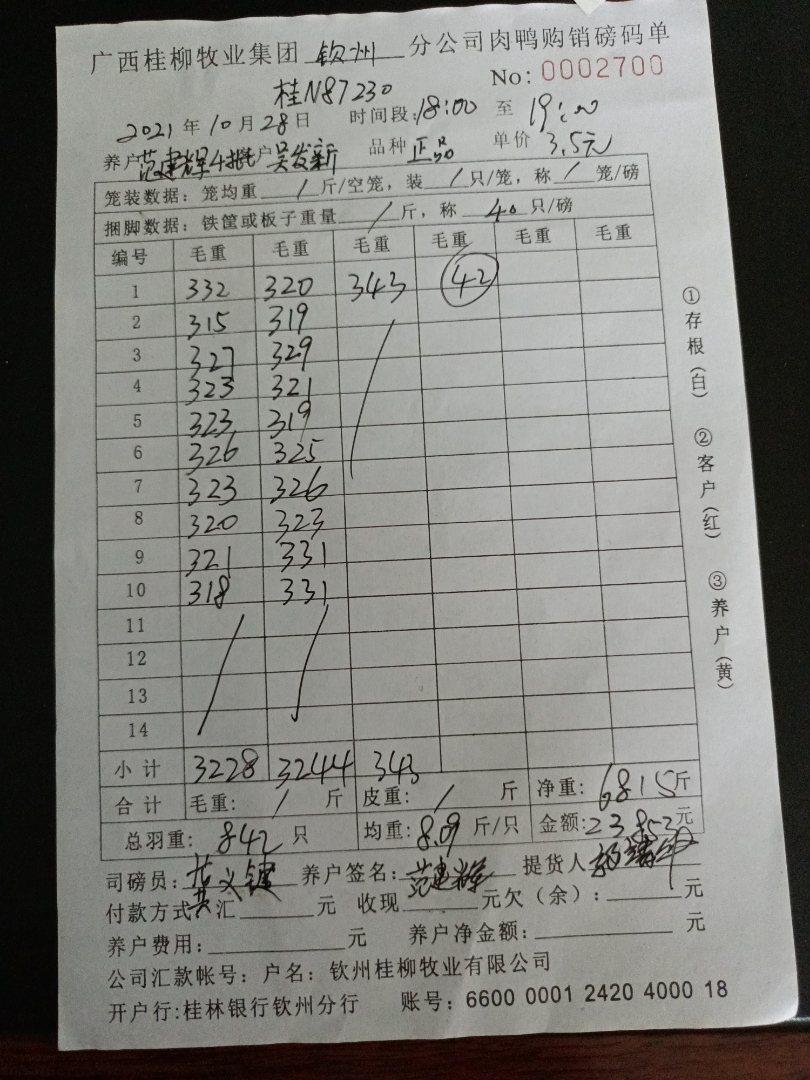 广西桂柳牧业集团 钦州 分公司肉鸭购销磅码单
桂N87230 No: 0002700
2021年10月28日 时间段: 18:00 至 19:00
养户 范建辉4批 客户 吴发新 品种 正品 单价 3.5元
笼装数据: 笼均重 / 斤/空笼, 装 / 只/笼, 称 / 笼/磅
捆脚数据: 铁筐或板子重量 / 斤, 称 40 只/磅
编号 毛重 毛重 毛重 毛重 毛重 毛重
1 332 320 343 42
2 315 319
3 327 329
4 323 321
5 323 319
6 326 325
7 323 326
8 320 323
9 321 331
10 318 331
11
12
13
14
小计 3228 3244 343
合计 毛重: / 斤 皮重: / 斤 净重: 6815斤
总羽重: 842 只 均重: 8.09 斤/只 金额: 23853元
司磅员: 养户签名: 范建辉 提货人
付款方式: 汇 元 收现 元欠(余): 元
养户费用: 元 养户净金额: 元
公司汇款帐号: 户名: 钦州桂柳牧业有限公司
开户行:桂林银行钦州分行 账号: 6600 0001 2420 4000 18
①存根(白) ②客户(红) ③养户(黄)